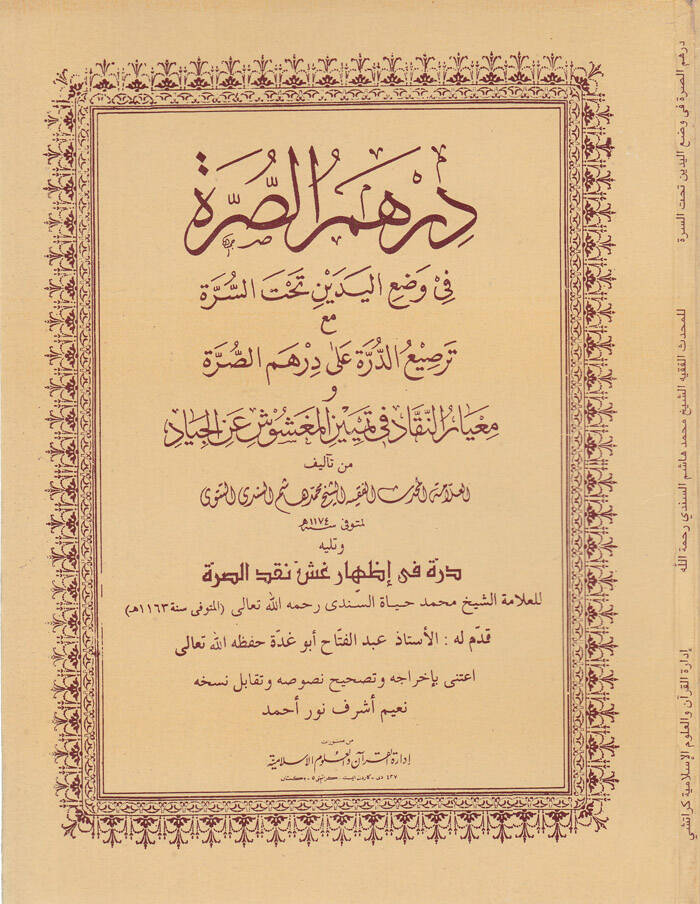 دِرْهَمُ الصُّرَّة
فِيْ وَضْعِ الْيَدَيْنِ تَحْتَ السُّرَّة
مع
تَرصِيْعُ الدُّرَّة عَلٰى دِرْهَمِ الصُّرَّة
و
مِعْيَارُ النُّقَّاد فِى تَمْيِيْزِ الْمَغْشُوْشِ عَنِ الْجِيَاد
من تأليف
العلامة المحدث الفقيه الشيخ محمد هاشم السندى التتوى
المتوفى سنة ١١٧٤ھ
وتليه
درة فى إظهار غش نقد الصرة
للعلامة الشيخ محمد حياة السندى رحمه الله تعالى (المتوفى سنة ١١٦٣هـ)
قدّم له : الأستاذ عبد الفتّاح أبو غدّة حفظه الله تعالى
اعتنى بإخراجه وتصحيح نصوصه وتقابل نسخه
نعيم أشرف نور أحمد
من منشورات
إدارة القرآن والعلوم الإسلامية
٤٣٧ دى ، گاردن ايست ، كراتشى ٥ - پاكستان
درهم الصرة فى وضع اليدين تحت السرة
للمحدث الفقيه الشيخ محمد هاشم السندي رحمة الله
إدارة القرآن والعلوم الإسلامية كراتشي